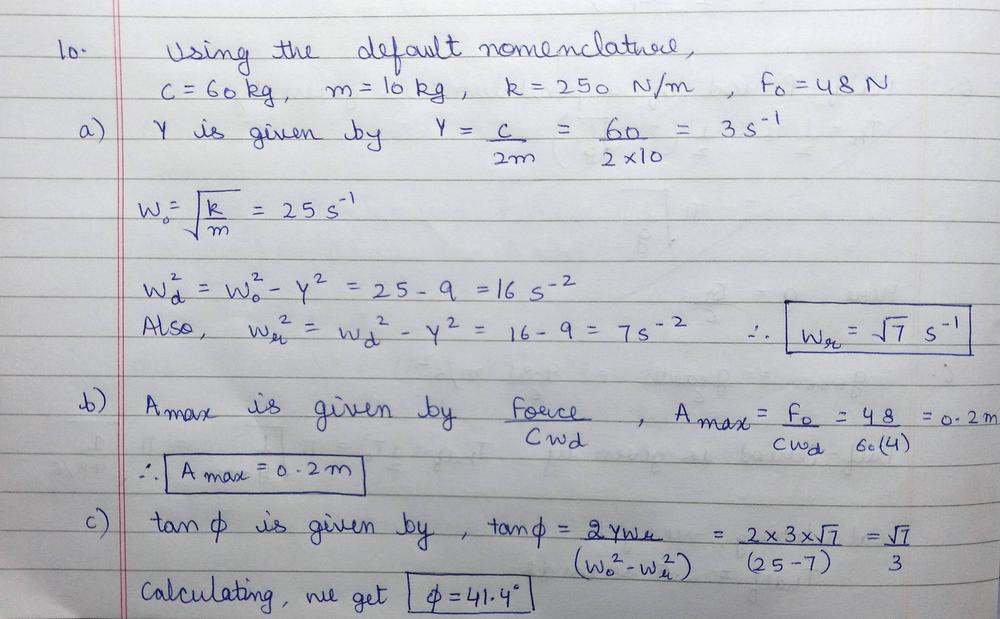 10. Using the default nomenclature,
c = 60 kg, m = 10 kg, k = 250 N/m, F₀ = 48 N
a) γ is given by γ = c/2m = 60/(2×10) = 3 s⁻¹
W₀ = √(k/m) = 25 s⁻¹
W_d² = W₀² - γ² = 25 - 9 = 16 s⁻²
Also, W_r² = W_d² - γ² = 16 - 9 = 7 s⁻² ∴ W_r = √7 s⁻¹
b) A max is given by Force/CWd, A max = F₀/CWd = 48/60(4) = 0.2 m
∴ A max = 0.2 m
c) tan φ is given by, tan φ = 2γW_r/(W₀² - W_r²) = 2×3×√7/(25-7) = √7/3
Calculating, we get φ = 41.4°